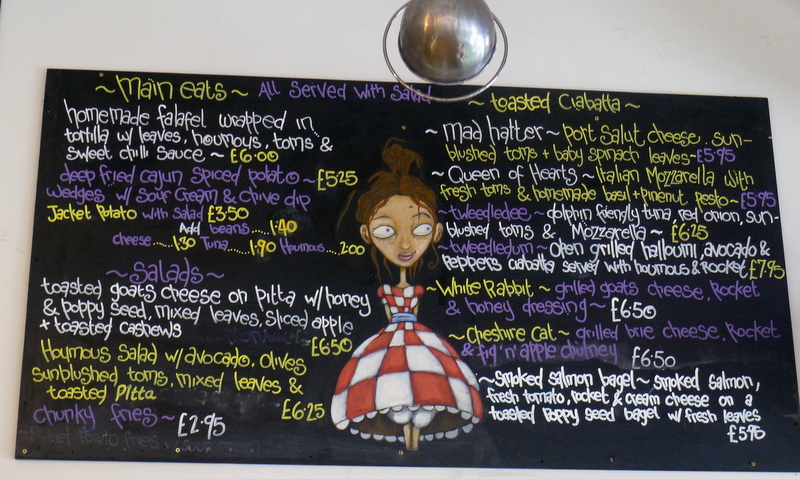 ~ Main eats ~ All Served with Salad
homemade falafel wrapped in
tortilla w/ leaves, houmous, toms &
sweet chilli sauce ~ £6.00
deep fried cajun spiced potato ~ £5.25
wedges w/ sour cream & chive dip
Jacket Potato with Salad £3.50
Add beans.....1.40
cheese....1.30 Tuna.....1.90 Houmous....2.00
~ Salads ~
toasted goats cheese on pitta w/ honey
& poppy seed, mixed leaves, sliced apple
+ toasted cashews
£6.50
Houmous Salad w/ avocado, olives
sunblushed toms, mixed leaves &
toasted Pitta
£6.25
chunky fries ~ £2.95
~ toasted Ciabatta ~
~ mad hatter ~ port salut cheese, sun-
blushed toms + baby spinach leaves ~ £5.95
~ Queen of Hearts ~ Italian Mozzarella with
fresh toms & homemade basil + pinenut pesto ~ £5.95
~ tweedledee ~ dolphin friendly tuna, red onion, sun-
blushed toms & Mozzarella ~ £6.25
~ tweedledum ~ Open grilled halloumi, avocado &
peppers ciabatta served with houmous & rocket £7.95
~ White Rabbit ~ grilled goats cheese, rocket
& honey dressing ~ £6.50
~ Cheshire Cat ~ grilled brie cheese, rocket
& fig 'n' apple chutney £6.50
~ smoked salmon bagel ~ smoked salmon,
fresh tomato, rocket & cream cheese on a
toasted poppy seed bagel w/ fresh leaves
£5.95